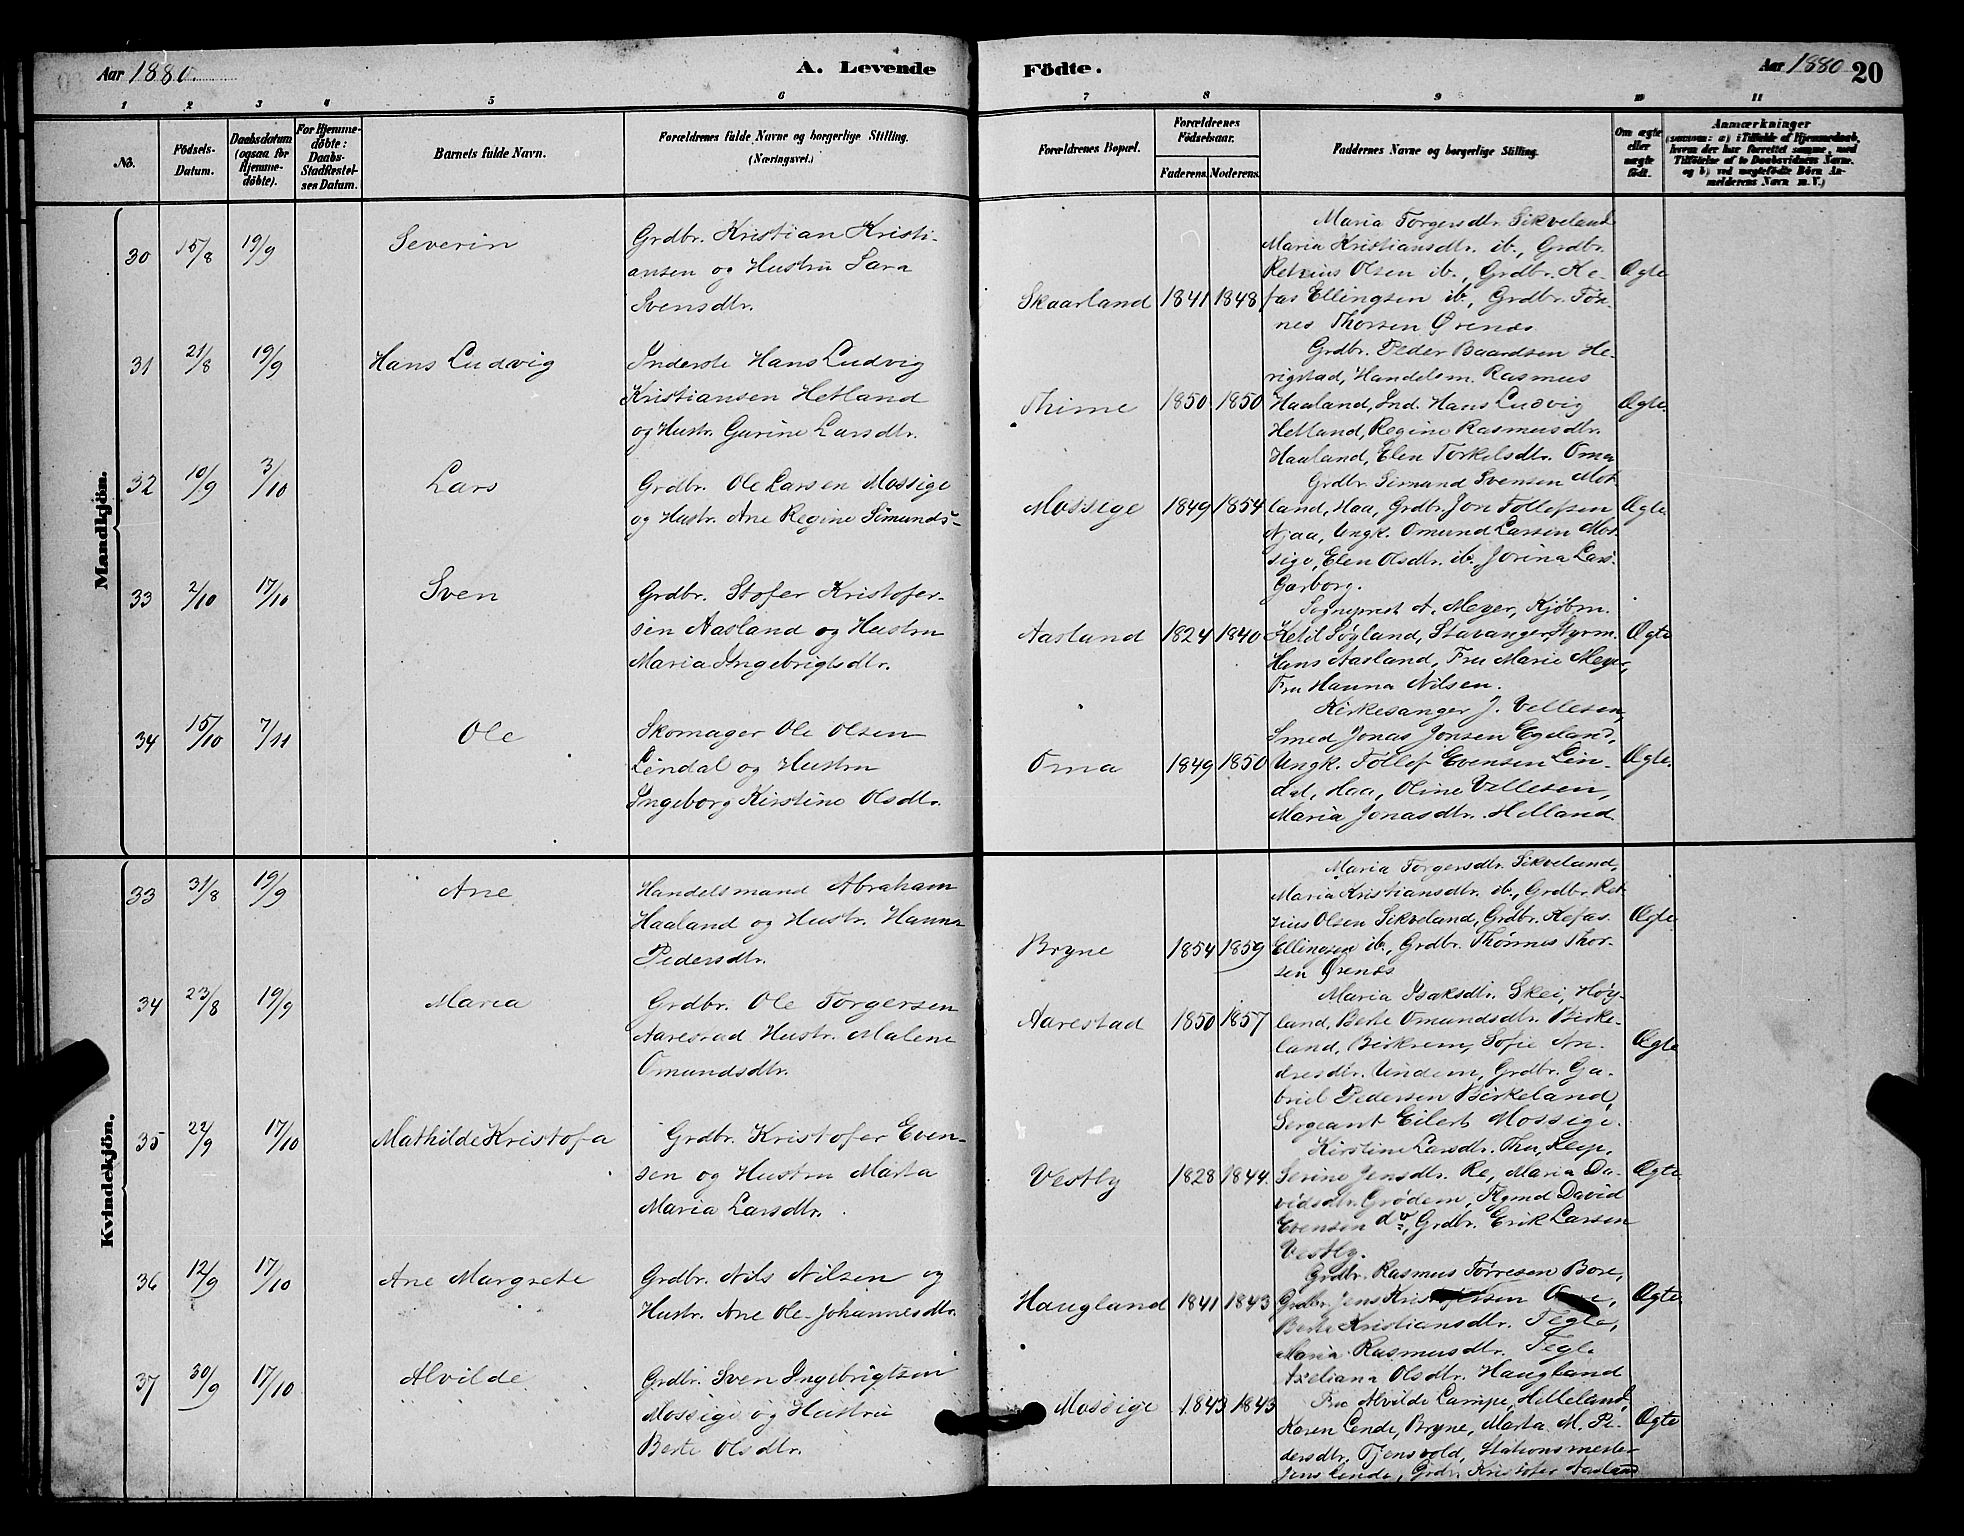 Aar 1880. A. Levende Födte. Aar 1880 20
1 2 3 4 5 6 7 8 9 10 11
No.
Födsels-
Datum.
Daabsdatum
(ogsaa for
Hjemme-
döbte).
For Hjemme-
döbte:
Daabs-
Stadfæstel-
ses Datum.
Barnets fulde Navn.
Forældrenes fulde Navne og borgerlige Stilling.
(Næringsvei.)
Forældrenes Bopæl.
Forældrenes
Födselsaar.
Faderens. Moderens.
Faddernes Navne og borgerlige Stilling.
Om ægte
eller
uægte
födt.
Anmærkninger
(saasom: a) i Tilfælde af Hjemmedaab,
hvem der har forrettet samme, med
Tilföielse af to Daabsvidners Navne.
og b) ved uægtefödte Börn An-
melderens Navn m. V.)
Mandkjön.
30 15/8 19/9 Severin
Grdbr. Kristian Kristi-
ansen og Hustru Sara
Svensdtr.
Skaarland 1841 1848
Maria Torgersdtr. Sikveland
Maria Kristiansdtr. ib., Grdbr.
Retzius Olsen ib., Grdbr. Ke-
fas Ellingsen ib., Grdbr. Tön-
nes Thorsen Ørenæs.
Ægte
31 21/8 19/9 Hans Ludvig
Inderste Hans Ludvig
Kristiansen Hetland
og Hustr. Gurine Larsdtr.
Thime 1850 1850
Grdbr. Peder Baardsen He-
rigstad, Handelsm. Rasmus
Haaland, Ind. Hans Ludvig
Hetland, Regine Rasmusdtr.
Haaland, Elen Torkelsdtr. Oma
Ægte.
32 10/9 3/10 Lars
Grdbr. Ole Larsen Mossige
og Hustr. Ane Regine Simunds-
Mossige 1849 1854
Grdbr. Simund Svensen Mot-
land, Haa, Grdbr. Jon Tollefsen
Njaa, Ungk. Omund Larsen Mos-
sige, Elen Olsdtr. ib., Jorina Lars-
Garborg.
Ægte
33 2/10 17/10 Sven
Grdbr. Stofer Kristofer-
sen Aasland og Hustru
Maria Ingebrigtsdtr.
Aasland 1824 1840
Sogneprest A. Meyer, Kjöbm.
Ketil Søyland, Stavanger, Styrm.
Hans Aasland, Fru Marie Meyer,
Fru Hanna Nilsen.
Ægte
34 15/10 7/11 Ole
Skomager Ole Olsen
Lindal og Hustru
Ingeborg Kirstine Olsdtr.
Oma 1849 1850
Kirkesanger J. Vellesen,
Smed Jonas Jonsen Egeland,
Ungk. Tollef Evensen Lin-
dal, Haa, Oline Vellesen,
Maria Jonasdtr. Helland
Ægte.
Kvindekjön.
33 31/8 19/9 Ane
Handelsmand Abraham
Haaland og Hustr. Hanna
Pedersdtr.
Bryne 1854 1859
Maria Torgersdtr. Sikveland,
Maria Kristiansdtr. ib., Grdbr. Ret-
zius Olsen Sikveland, Grdbr. Kefas
Ellingsen ib., Grdbr. Thönnes Thor-
sen Ørenæs
Ægte
34 23/8 19/9 Maria
Grdbr. Ole Torgersen
Aarestad Hustr. Malene
Omundsdtr.
Aarestad 1850 1857
Maria Isaksdtr. Skei, Høy-
land, Berte Omundsdtr. Birke-
land, Birkrem, Sofie An-
dresdtr. Undem, Grdbr. Ga-
briel Pedersen Birkeland,
Sergeant Eilert Mossige.
Ægte
35 22/9 17/10 Mathilde Kristofa
Grdbr. Kristofer Even-
sen og Hustru Marta
Maria Larsdtr.
Vestly 1828 1844.
Kirstine Larsdtr. Thu, Klep,
Serine Jensdtr. Re, Maria Da-
vidsdtr. Grødem, Fgmd David
Evensen do, Grdbr. Erik Larsen
Vestly.
Ægte
36 12/9 17/10 Ane Margrete
Grdbr. Nils Nilsen og
Hustr. Ane Ole-Johannesdtr.
Haugland 1841 1843
Grdbr. Rasmus Tørresen Bore,
Grdbr. Jens
Berte Kristiansdtr. Tegle,
Maria Rasmusdtr. Tegle
Axeliana Olsdtr. Haugland
Ægte
37 30/9 17/10 Alvilde
Grdbr. Sven Ingebrigtsen
Mossige og Hustru
Berte Olsdtr.
Mossige 1843 1843
Fru Alvilde Lampe, Hilleland,
Karen Lende, Bryne, Marta M. Pe-
dersdtr. Tjensvold, Stationsmester
Jens Lende, Grdr. Kristofer Aasland
Ægte